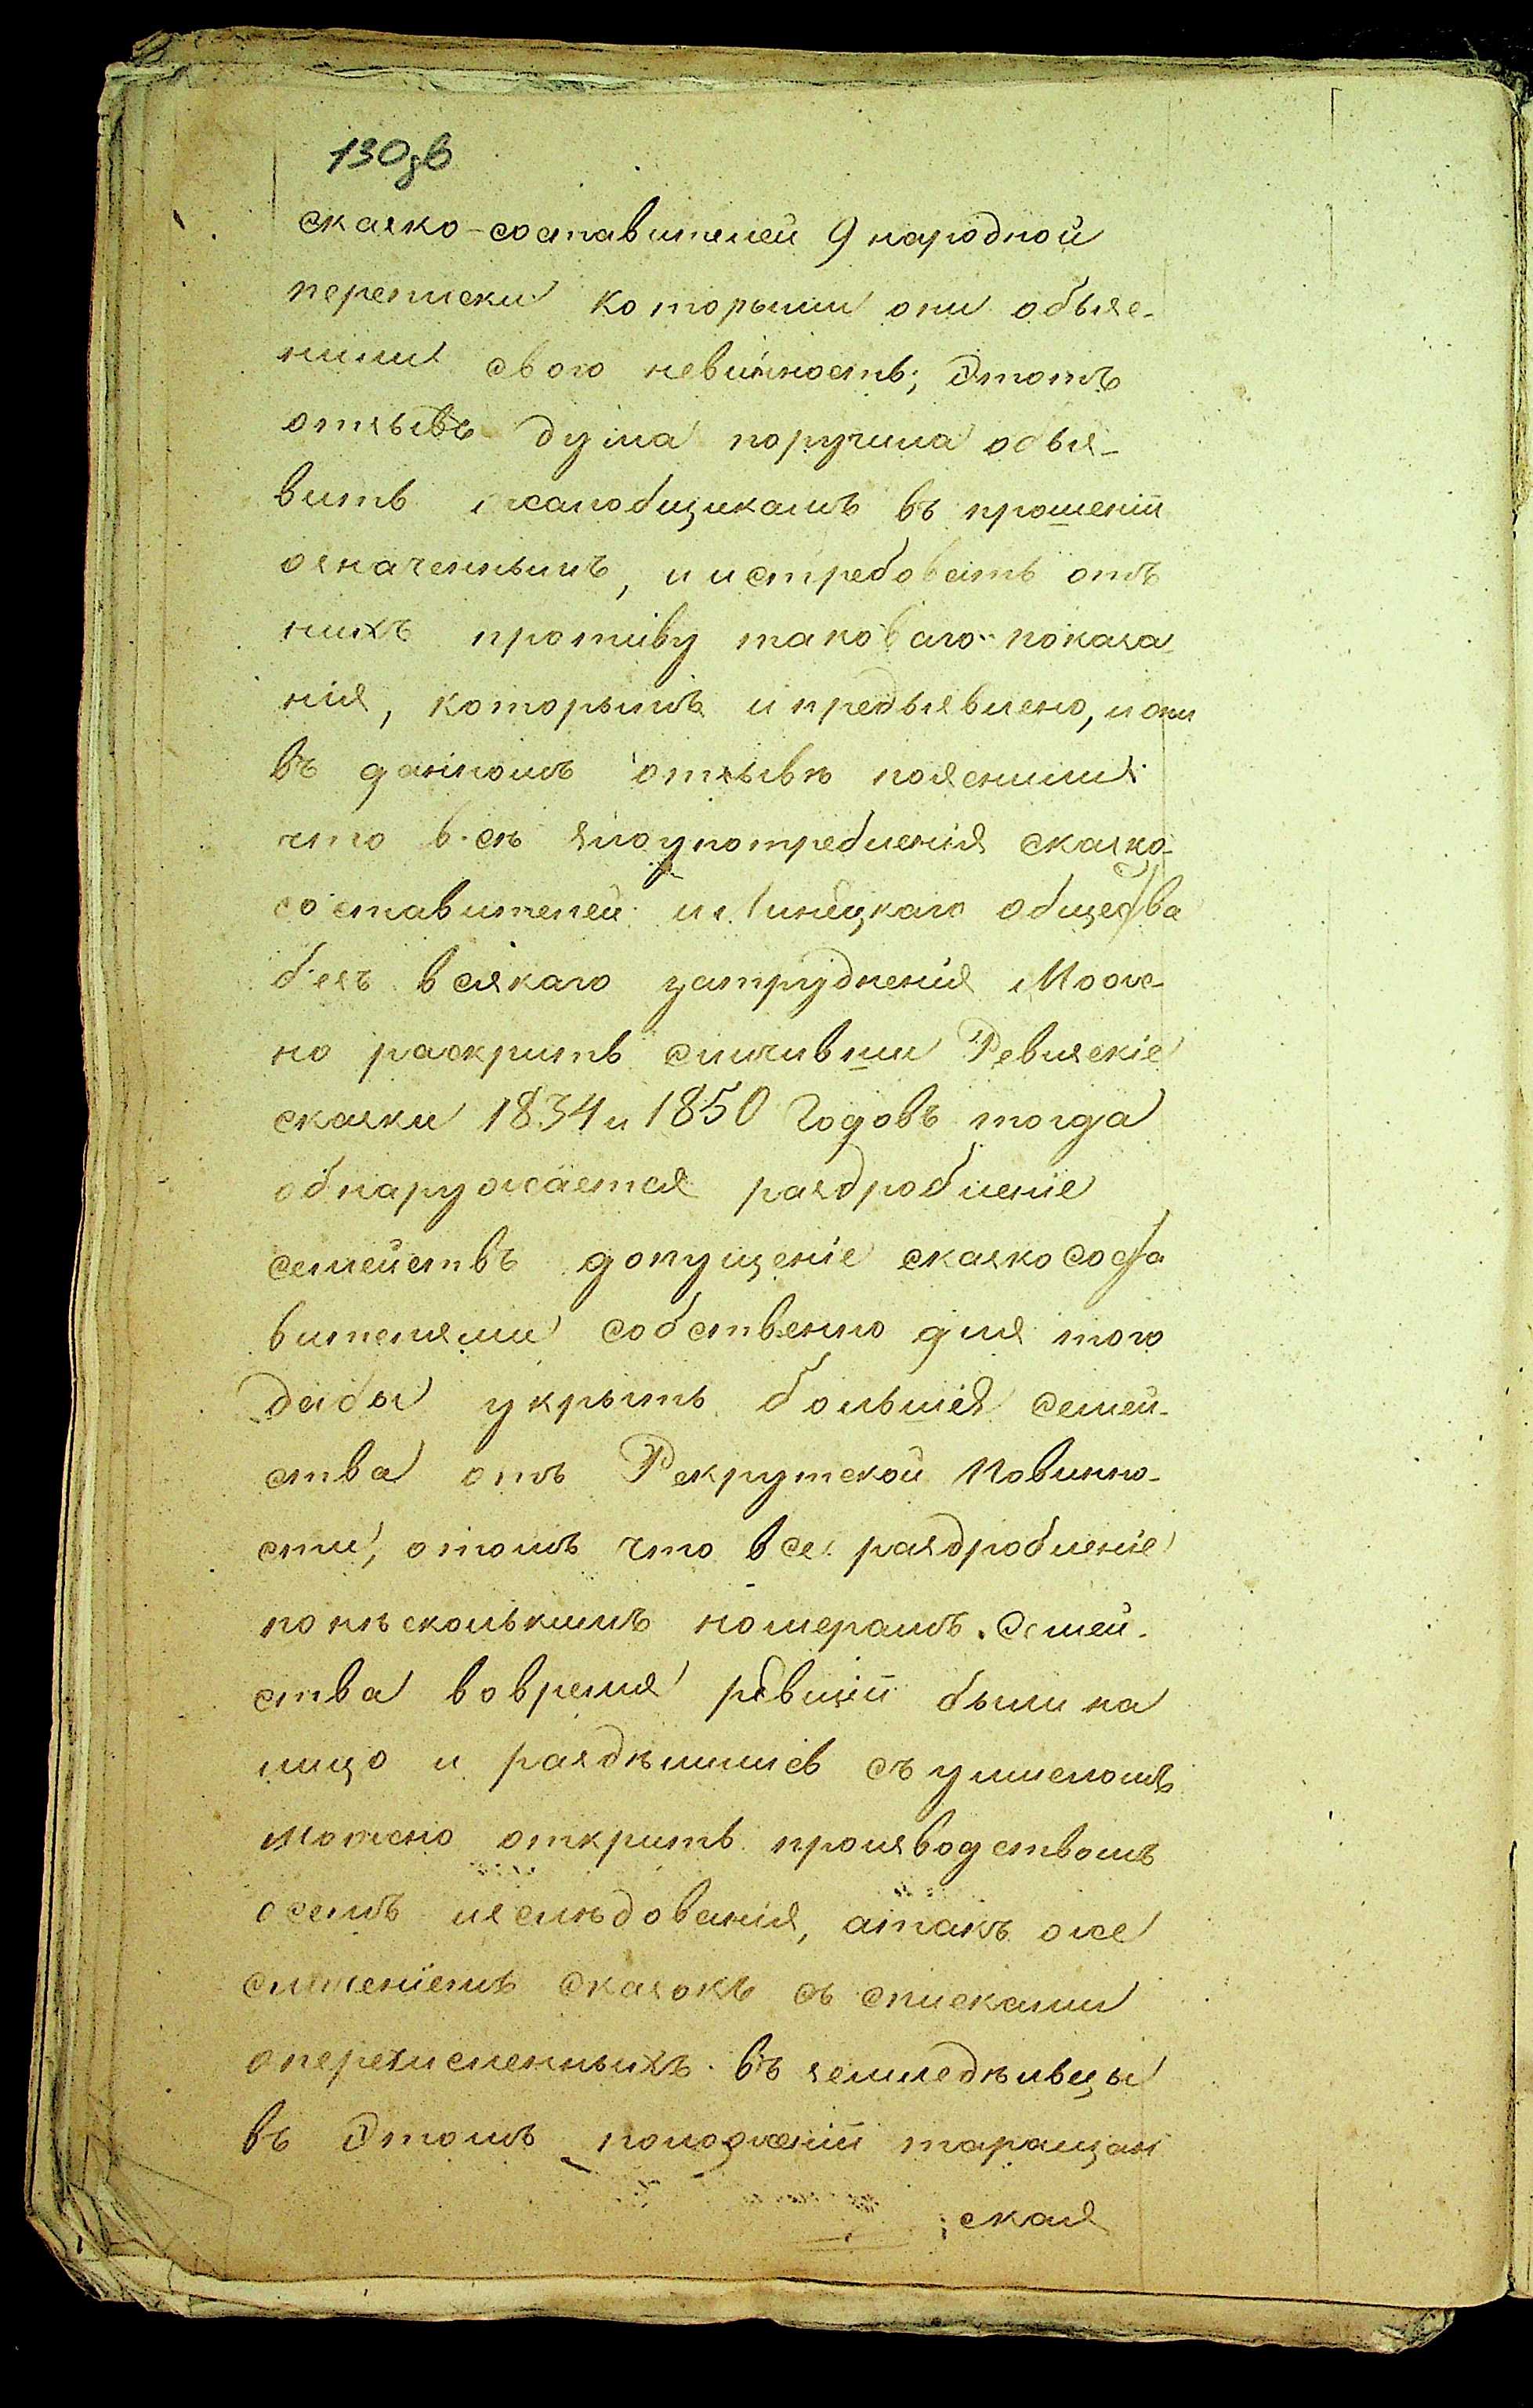 130зв
сказко-составителей 9 народной
переписки которыми они объяс-
нили свою невинность; Этотъ
отзывъ дума поручила объя-
вить жалобщикамъ въ прошеніи
означеннымъ, и истребовать отъ
нихъ противу таковаго показа
нія, которымъ и предъявлено, и они
въ данномъ отзывѣ пояснили
что всѣ злоупотребленія сказко-
составителей и общества
безъ всякаго затрудненія Мож-
но раскрить сличивши Ревизскіе
сказки 1834 и 1850 Годовъ тогда
обнаружается раздробленіе
семействъ допущеніе сказкососта
вителями собственно для того
дабы укрыть большія семей-
ства отъ Рекрутской Повинно-
сти, отомъ что все раздробленіе
понѣсколькимъ номерамъ семей-
ства вовремя ревизіи были на
лицо и раздѣлились съ умысломъ
можно открить производствомъ
осемъ изслѣдованія, атакъ же
сличеніемъ сказокъ съ списками
оперечисленныхъ въ землѣдѣльцы
въ Этомъ положеніи таращан
ская